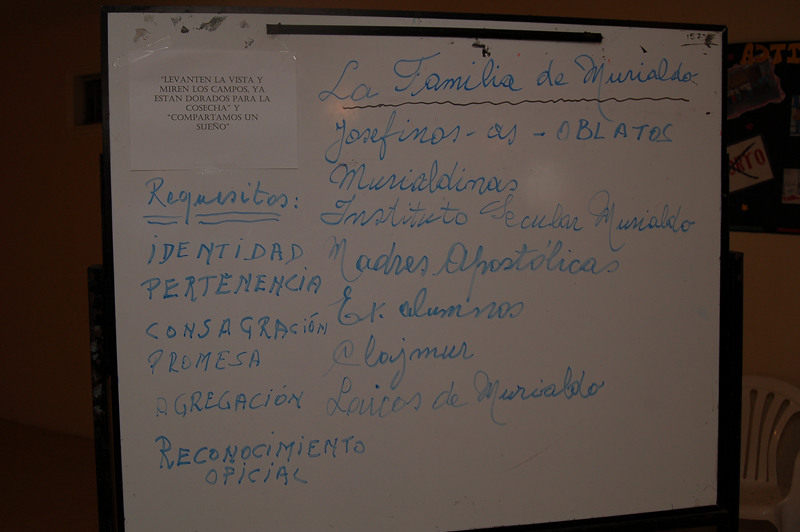 "LEVANTEN LA VISTA Y
MIREN LOS CAMPOS, YA
ESTAN DORADOS PARA LA
COSECHA" Y
"COMPARTAMOS UN
SUEÑO"
La Familia de Murialdo
Josefinos - as - OBLATOS
Murialdinas
Instituto Secular Murialdo
Madres Apostólicas
Ex. alumnos
Clajmur
Laicos de Murialdo
Requisitos:
IDENTIDAD
PERTENENCIA
CONSAGRACIÓN
PROMESA
AGREGACIÓN
RECONOCIMIENTO
OFICIAL